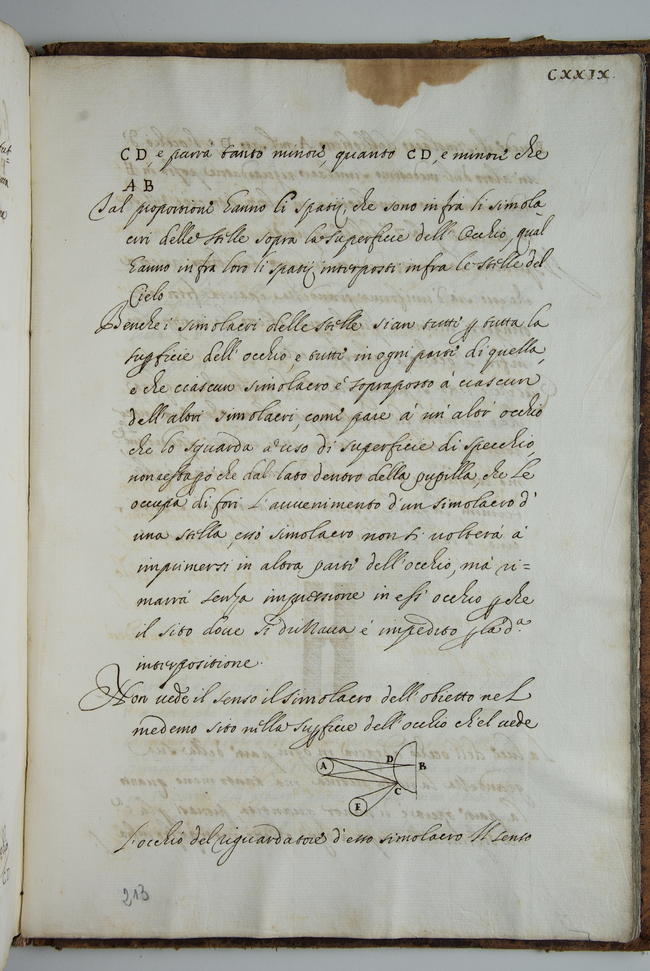 CXXIX
CD, e parrà tanto minore, quanto CD, e minore che
AB
Tal proporzione hanno li spatij, che sono infra li simola
cri delle stelle sopra la superficie dell'Occhio, qual
hanno infra loro li spatij interposti infra le stelle del
Cielo
Benche i simolacri delle stelle sian tutti p tutta la
supficie dell'occhio, e tutti in ogni parte di quella,
e che ciascun simolacro è sopraposto à ciascun
dell'altri simolacri, come pare à un altr'occhio
che lo sguarda a uso di superficie di specchio,
non resta p che dal lato dentro della pupilla, che le
occupa di fori l'avvenimento d'un simolacro d'
una stella, esso simolacro non si volterà à
imprimersi in altra parte dell'occhio, mà ri=
marrà senza impressione in esso occhio p che
il sito dove si è impedito p la d.ª
interpositione.
Non vede il senso il simolacro dell'obietto nel
medemo sito nella supficie dell'occhio ch'el vede
A
D
B
C
E
L'occhio del riguardatore d'esso simolacro Il senso
213